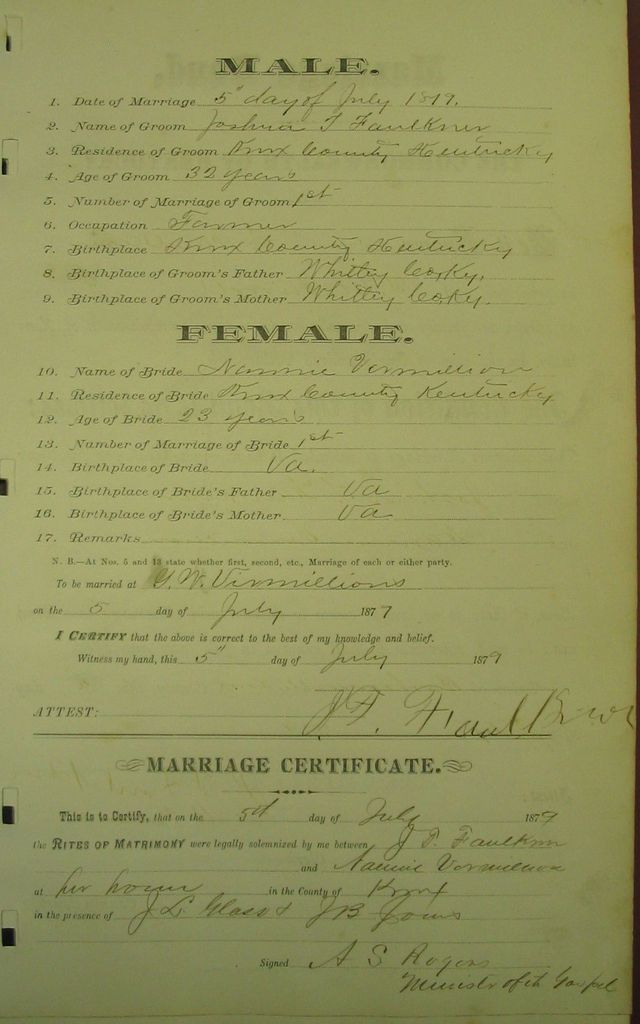 MALE.
1. Date of Marriage 5" day of July 1879.
2. Name of Groom Joshua T Faulkner
3. Residence of Groom Knox County Kentucky
4. Age of Groom 32 years
5. Number of Marriage of Groom 1st
6. Occupation Farmer
7. Birthplace Knox County Kentucky
8. Birthplace of Groom's Father Whitley Co, Ky.
9. Birthplace of Groom's Mother Whitley Co, Ky.
FEMALE.
10. Name of Bride Nannie Vermillion
11. Residence of Bride Knox County Kentucky
12. Age of Bride 23 years
13. Number of Marriage of Bride 1st
14. Birthplace of Bride Va.
15. Birthplace of Bride's Father Va
16. Birthplace of Bride's Mother Va
17. Remarks
N. B.—At Nos. 5 and 13 state whether first, second, etc., Marriage of each or either party.
To be married at G. W. Virmillions
on the 5 day of July 1879
I CERTIFY that the above is correct to the best of my knowledge and belief.
Witness my hand, this 5" day of July 1879
ATTEST: J. T. Faulkner
MARRIAGE CERTIFICATE.
This is to Certify, that on the 5th day of July 1879
the RITES OF MATRIMONY were legally solemnized by me between J T. Faulkner
and Nannie Vermillion
at her home in the County of Knox
in the presence of J L Glass & J B Jones
Signed A S Rogers
Minister of the Gospel